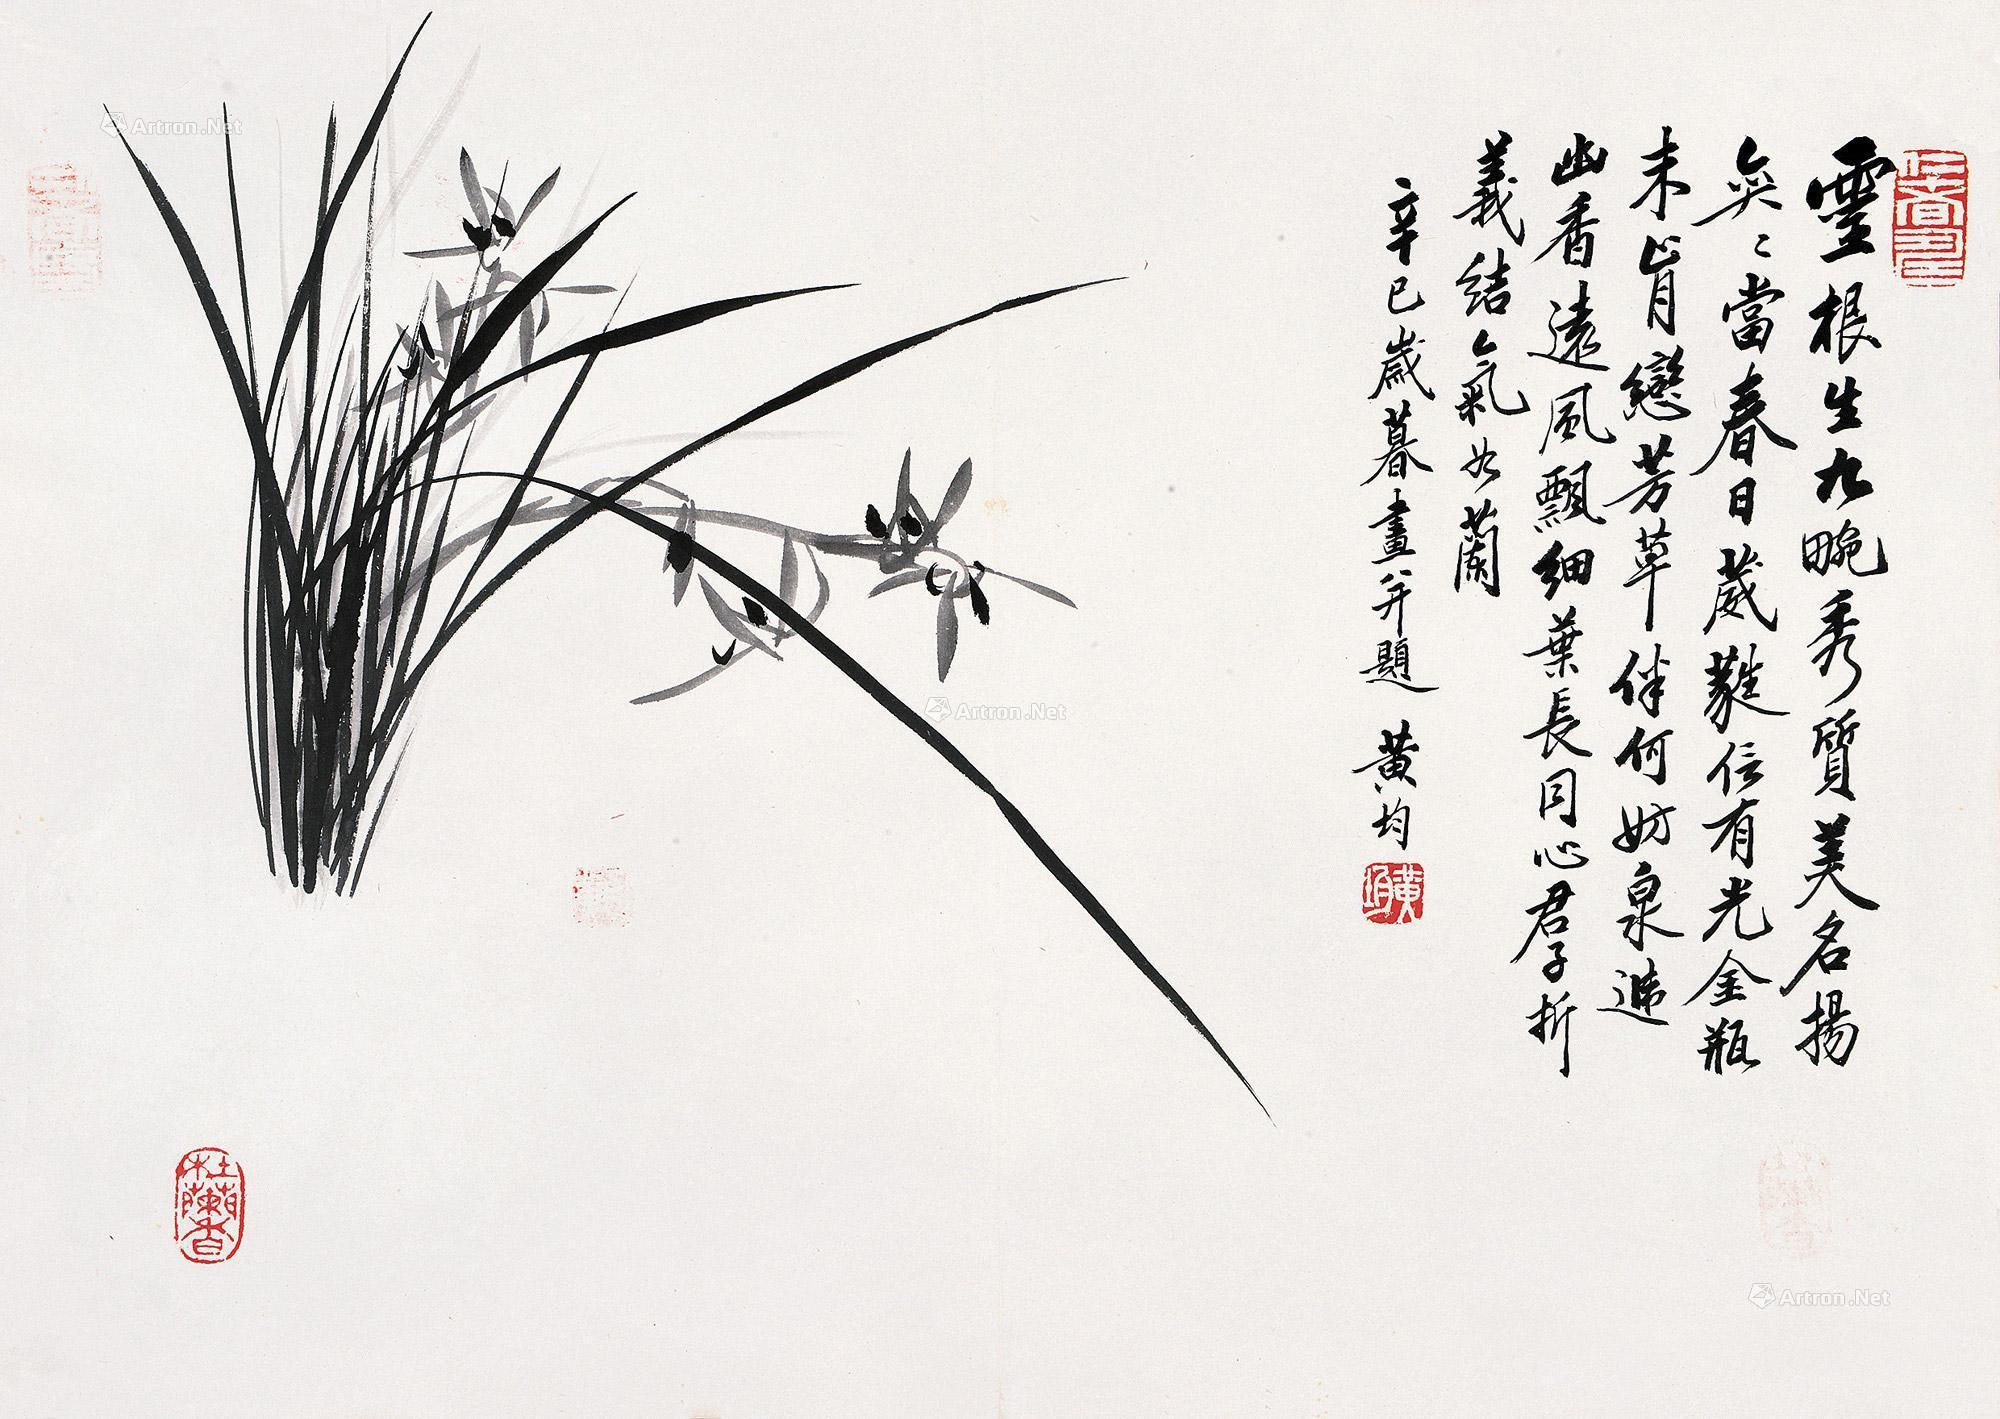 靈根生九畹秀質美名揚
奕〻當春日葳蕤信有光金瓶
未肯戀芳草伴何妨泉遞
幽香遠風飄細葉長同心君子折
義結氣如蘭
辛巳歲暮畫并題 黃均
黃均
杜蘭香
Artron.Net
Artron.Net
Artron.Net